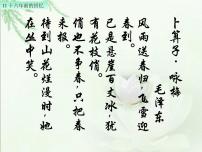 11 十六年前的回忆
卜算子·咏梅
毛泽东
风雨送春归，飞雪迎
春到。
已是悬崖百丈冰，犹
有花枝俏。
俏也不争春，只把春
来报。
待到山花烂漫时，她
在丛中笑。